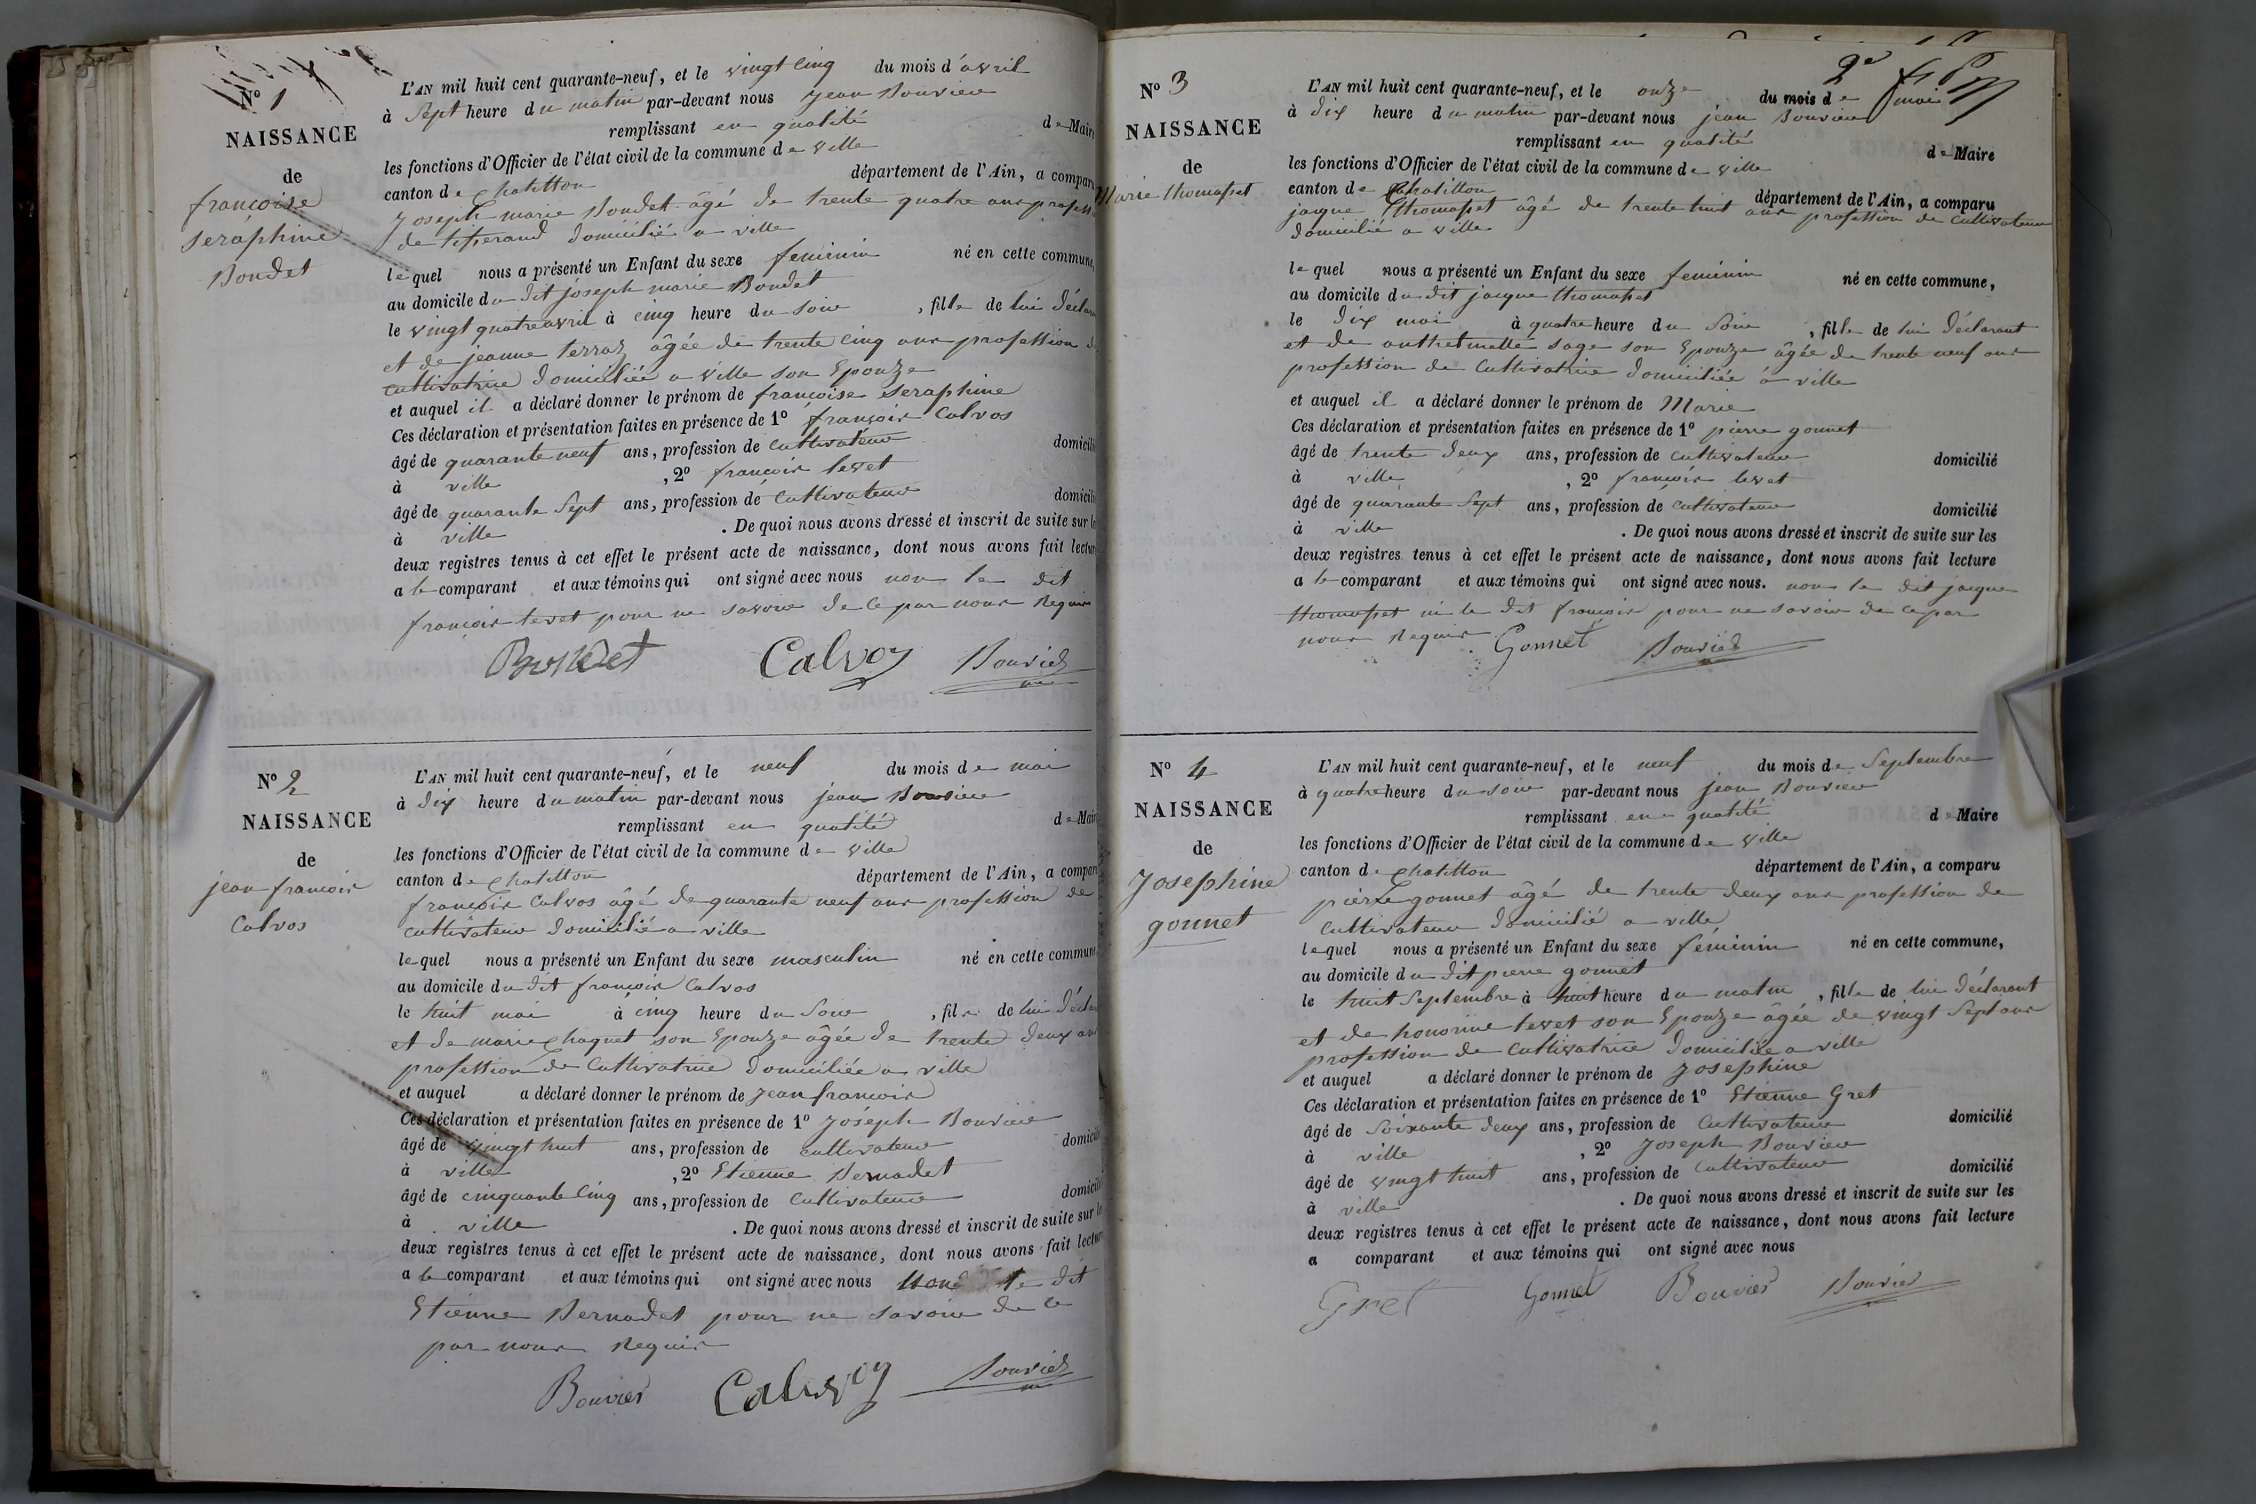 N° 1
NAISSANCE
de
françoise
seraphine
Bondet
L'AN mil huit cent quarante-neuf, et le vingt cinq du mois d'avril
à Sept heure du matin par-devant nous jean Bouvier
remplissant en qualité de Maire
les fonctions d'Officier de l'état civil de la commune de ville
canton de Chatillon département de l'Ain, a comparu
Joseph marie Bondet âgé de trente quatre ans profession
de tisserand domicilié a ville
lequel nous a présenté un Enfant du sexe feminin né en cette commune,
au domicile du dit joseph marie Bondet
le vingt quatre avril à cinq heure du soir, fille de lui Déclarant
et de jeanne terraz âgée de trente cinq ans profession de
cultivatrice domiciliée a ville son Epouze
et auquel il a déclaré donner le prénom de françoise seraphine
Ces déclaration et présentation faites en présence de 1° françois Calvos
âgé de quarante neuf ans, profession de cultivateur domicilié
à ville, 2° françois levet
âgé de quarante Sept ans, profession de cultivateur domicilié
à ville. De quoi nous avons dressé et inscrit de suite sur les
deux registres tenus à cet effet le présent acte de naissance, dont nous avons fait lecture
a le comparant et aux témoins qui ont signé avec nous non le dit
françois levet pour ne savoir de ce par nous Requis
Bondet Calvoz Bouvier
N° 2
NAISSANCE
de
jean françois
Calvos
L'AN mil huit cent quarante-neuf, et le neuf du mois de mai
à dix heure du matin par-devant nous jean Bouvier
remplissant en qualité de Maire
les fonctions d'Officier de l'état civil de la commune de ville
canton de Chatillon département de l'Ain, a comparu
françois Calvos âgé de quarante neuf ans profession de
cultivateur domicilié a ville
lequel nous a présenté un Enfant du sexe masculin né en cette commune
au domicile du dit françois Calvos
le huit mai à cinq heure du soir, fils de lui Déclarant
et de marie chaquet son Epouze âgée de trente deux ans
profession de Cultivatrice domiciliée a ville
et auquel a déclaré donner le prénom de jean françois
Ces déclaration et présentation faites en présence de 1° joseph Bouvier
âgé de vingt huit ans, profession de cultivateur domicilié
à ville, 2° Etienne Bernadet
âgé de cinquante cinq ans, profession de Cultivateur domicilié
à ville. De quoi nous avons dressé et inscrit de suite sur les
deux registres tenus à cet effet le présent acte de naissance, dont nous avons fait lecture
a le comparant et aux témoins qui ont signé avec nous non le dit
Etienne Bernadet pour ne savoir de ce
par nous Requis
Bouvier Calvoz Bouvier
2e
N° 3
NAISSANCE
de
Marie thomasset
L'AN mil huit cent quarante-neuf, et le onze du mois de mai
à dix heure du matin par-devant nous jean Bouvier
remplissant en qualité de Maire
les fonctions d'Officier de l'état civil de la commune de ville
canton de Chatillon département de l'Ain, a comparu
jacque thomasset âgé de trente huit ans profession de cultivateur
domicilié a ville
lequel nous a présenté un Enfant du sexe feminin né en cette commune,
au domicile du dit jacque thomasset
le dix mai à quatre heure du Soir, fille de lui Déclarant
et de anthelmette sage son Epouze âgée de trente neuf ans
profession de Cultivatrice domiciliée à ville
et auquel il a déclaré donner le prénom de Marie
Ces déclaration et présentation faites en présence de 1° pierre gonnet
âgé de trente deux ans, profession de cultivateur domicilié
à ville, 2° françois levet
âgé de quarante Sept ans, profession de cultivateur domicilié
à ville. De quoi nous avons dressé et inscrit de suite sur les
deux registres tenus à cet effet le présent acte de naissance, dont nous avons fait lecture
a le comparant et aux témoins qui ont signé avec nous. non le dit jacque
thomasset ni le dit françois pour ne savoir de ce par
nous Requis Gonnet Bouvier
N° 4
NAISSANCE
de
Josephine
gonnet
L'AN mil huit cent quarante-neuf, et le neuf du mois de Septembre
à quatre heure du soir par-devant nous jean Bouvier
remplissant en qualité de Maire
les fonctions d'Officier de l'état civil de la commune de ville
canton de Chatillon département de l'Ain, a comparu
pierre gonnet âgé de trente deux ans profession de
cultivateur domicilié a ville
lequel nous a présenté un Enfant du sexe féminin né en cette commune,
au domicile du dit pierre gonnet
le huit Septembre à huit heure du matin, fille de lui déclarant
et de honorine levet son Epouze âgée de vingt Sept ans
profession de Cultivatrice domiciliée a ville
et auquel a déclaré donner le prénom de Josephine
Ces déclaration et présentation faites en présence de 1° Etienne Gret
âgé de Soixante deux ans, profession de Cultivateur domicilié
à ville, 2° Joseph Bouvier
âgé de vingt huit ans, profession de Cultivateur domicilié
à ville. De quoi nous avons dressé et inscrit de suite sur les
deux registres tenus à cet effet le présent acte de naissance, dont nous avons fait lecture
a comparant et aux témoins qui ont signé avec nous
Gret Gonnet Bouvier Bouvier